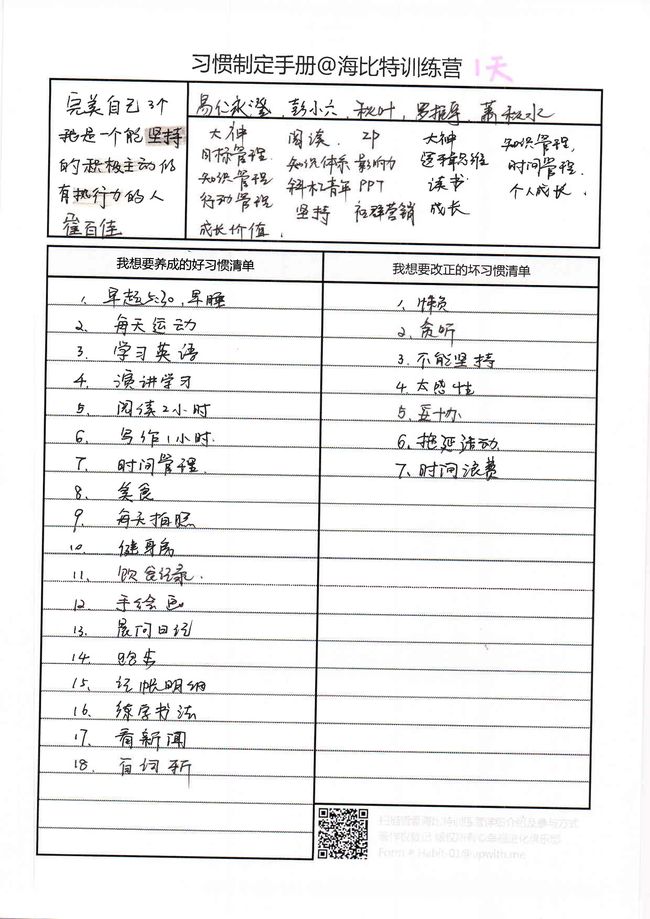 习惯制定手册@海比特训练营 1天
完美自己3个
我是一个能坚持
的积极主动的
有执行力的人
崔百佳
易仁永澄,彭小六,秋叶,罗振宇,萧秋水
大神 阅读. IP 大神 知识管理,
目标管理. 知识体系 影响力 逻辑思维 时间管理.
知识管理 斜杠青年 PPT 读书 个人成长.
行动管理 坚持 社群营销 成长
成长价值.
我想要养成的好习惯清单
1. 早起5:30,早睡
2. 每天运动
3. 学习英语
4. 演讲学习
5. 阅读2小时
6. 写作1小时.
7. 时间管理.
8. 美食
9. 每天拍照
10. 健身房
11. 饮食记录.
12. 手绘画
13. 晨间日记
14. 跑步
15. 记帐明细
16. 练字书法
17. 看新闻
18. 百词斩
我想要改正的坏习惯清单
1. 懒负
2. 贪听
3. 不能坚持
4. 太感性
5.
6. 拖延活动
7. 时间浪费
Form # Habit-01@upwith.me